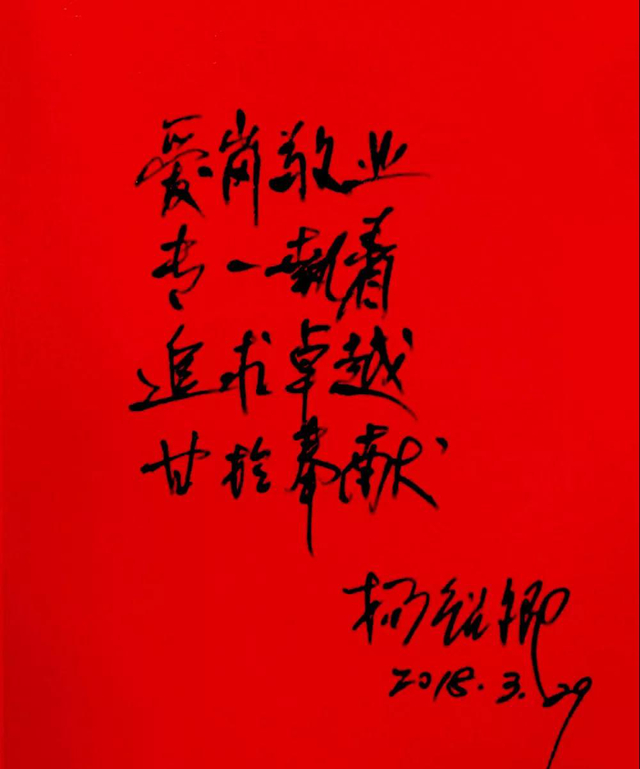 爱岗敬业
专一執着
追求卓越
甘於奉献
杨绍卿
2018.3.29